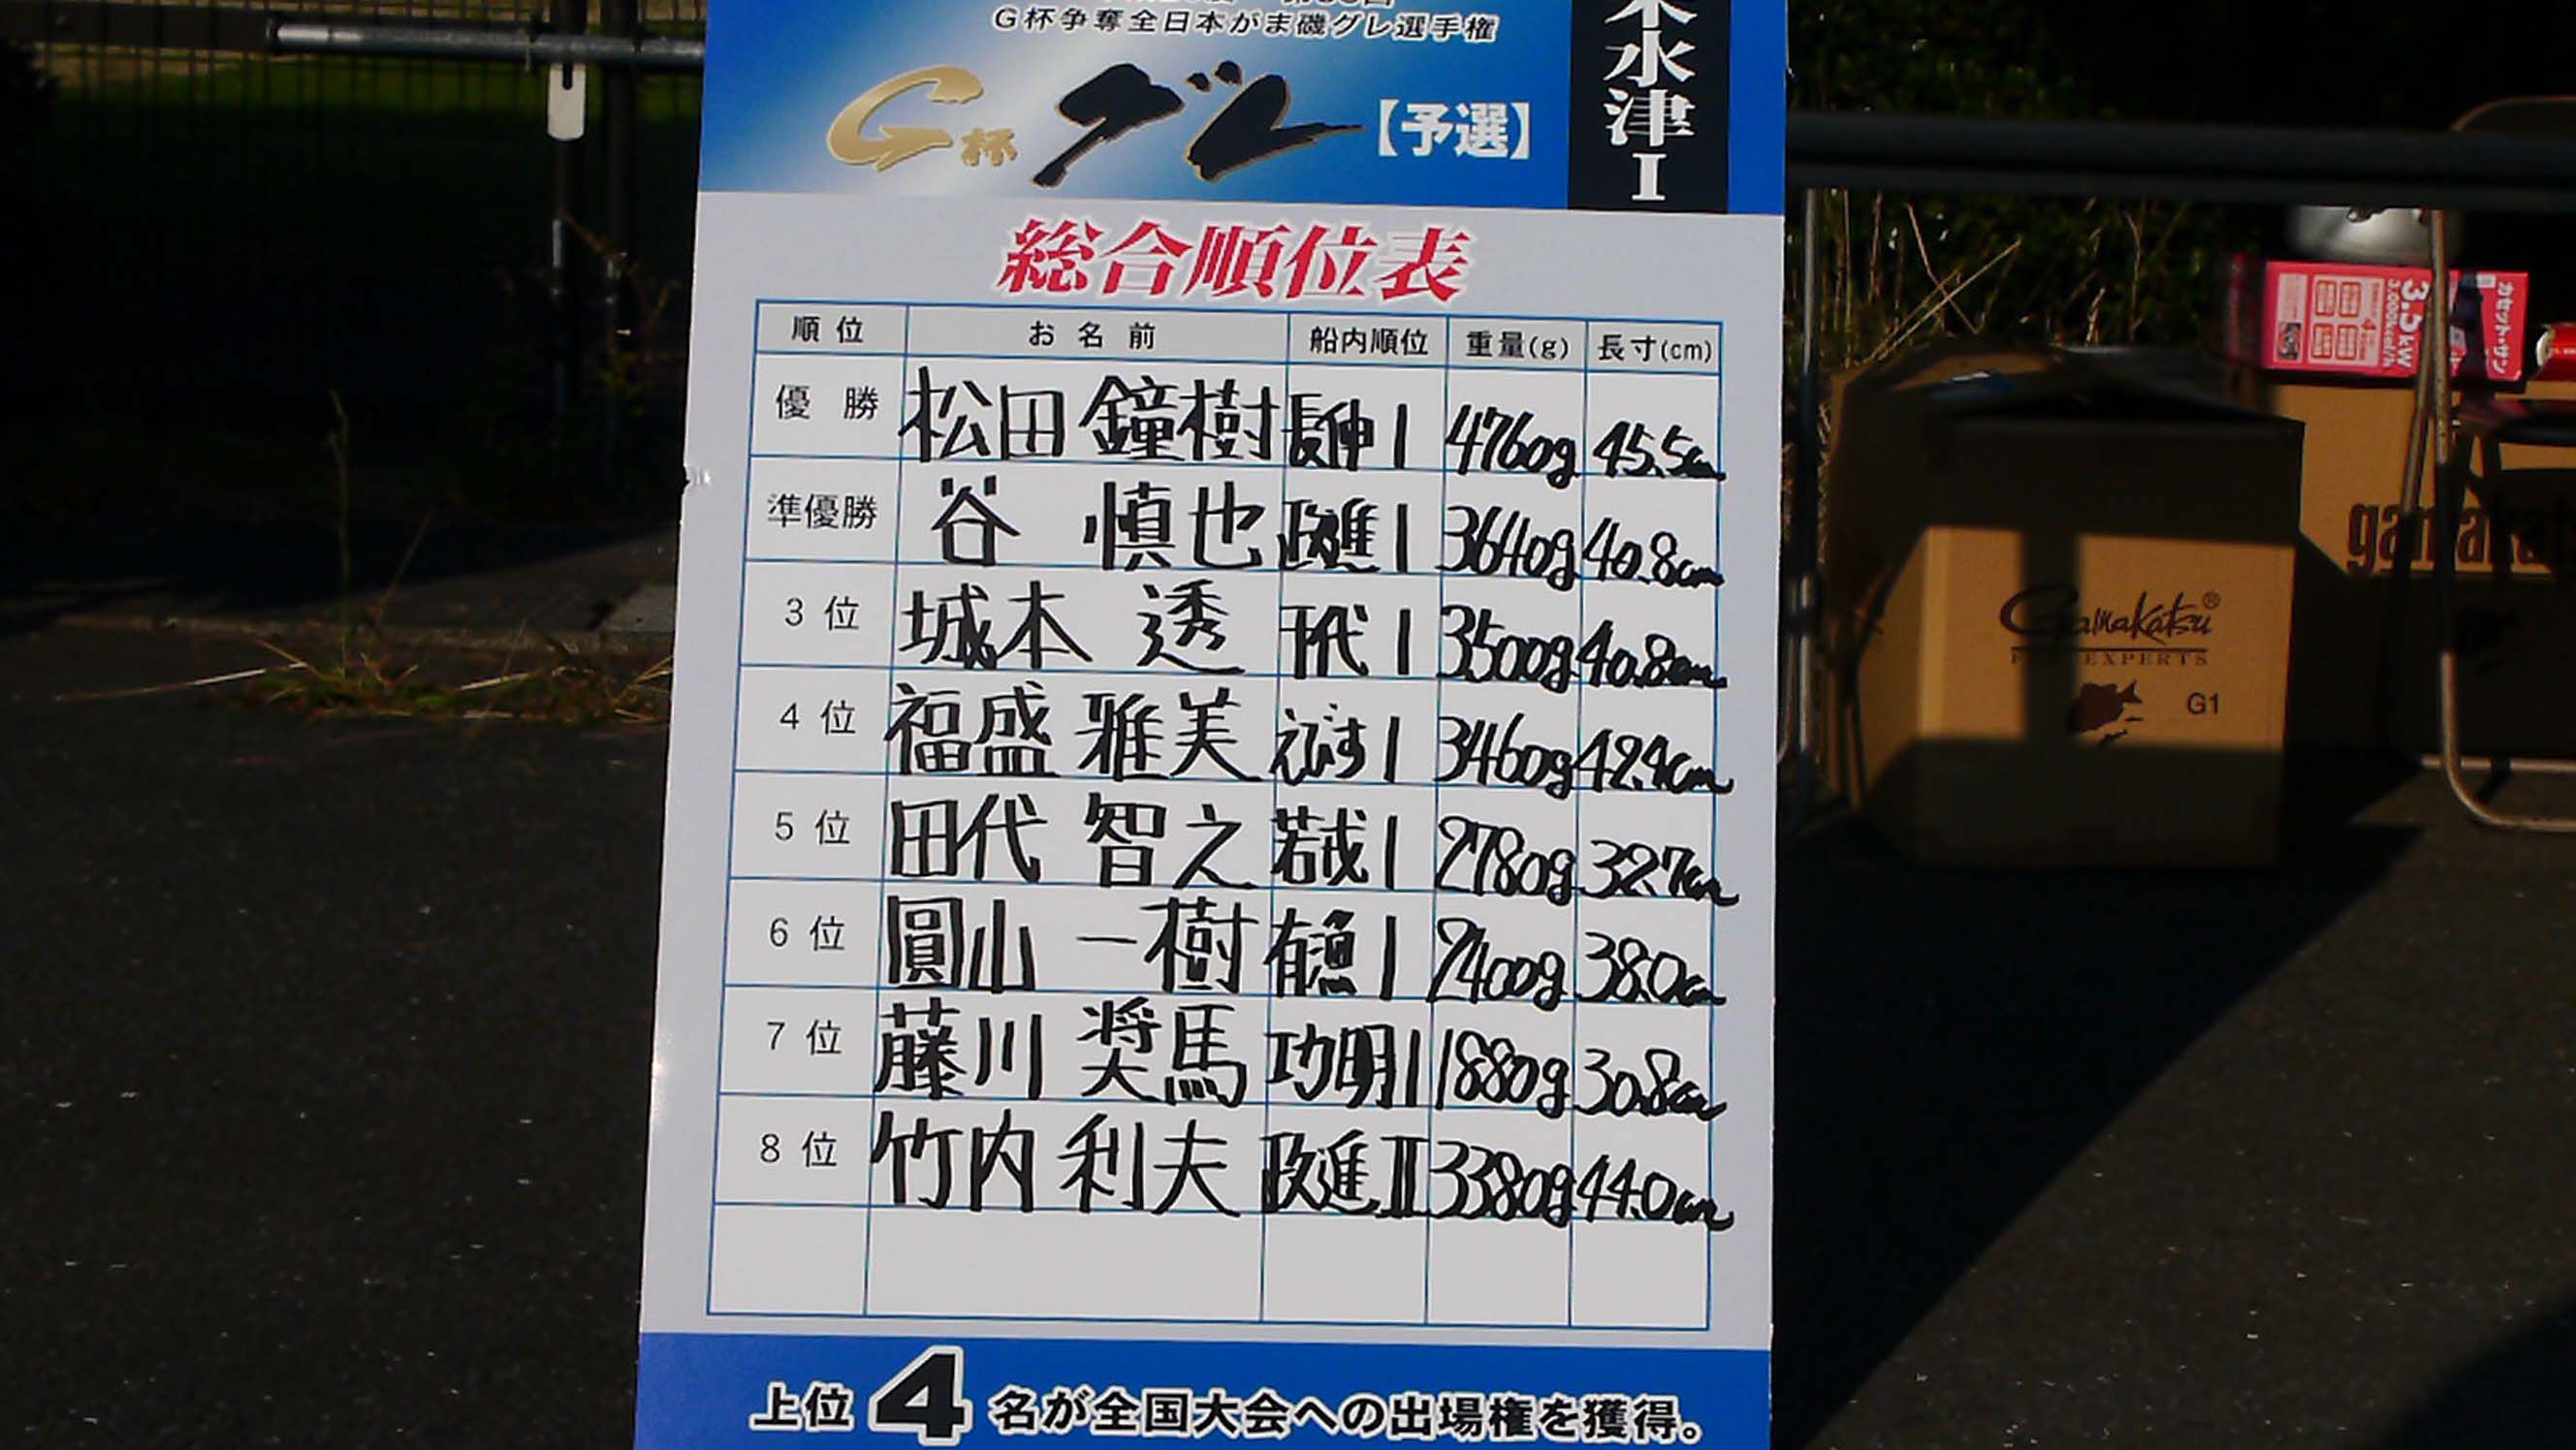 G杯争奪全日本がま磯グレ選手権
G杯 グレ 【予選】
米水津 I
総合順位表
順位 お名前 船内順位 重量(g) 長寸(cm)
優勝 松田 鐘樹 長伸 1 4760g 45.5cm
準優勝 谷 慎也 政進 1 3640g 40.8cm
3位 城本 透 千代 1 3500g 40.8cm
4位 福盛 雅美 えびす 1 3460g 42.4cm
5位 田代 智之 若戎 1 2780g 32.7cm
6位 圓山 一樹 有漁 1 2400g 38.0cm
7位 藤川 奨馬 功明 1 1880g 30.8cm
8位 竹内 利夫 政進 II 3380g 44.0cm
上位4名が全国大会への出場権を獲得。
カセット・サン
3.5kW
Gamakatsu®
EXPERTS
G1